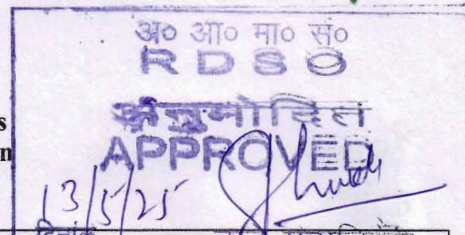 अ० आ० मा० सं०
R D S O
अनुमोदित
APPROVED
13/5/25
दिनांक